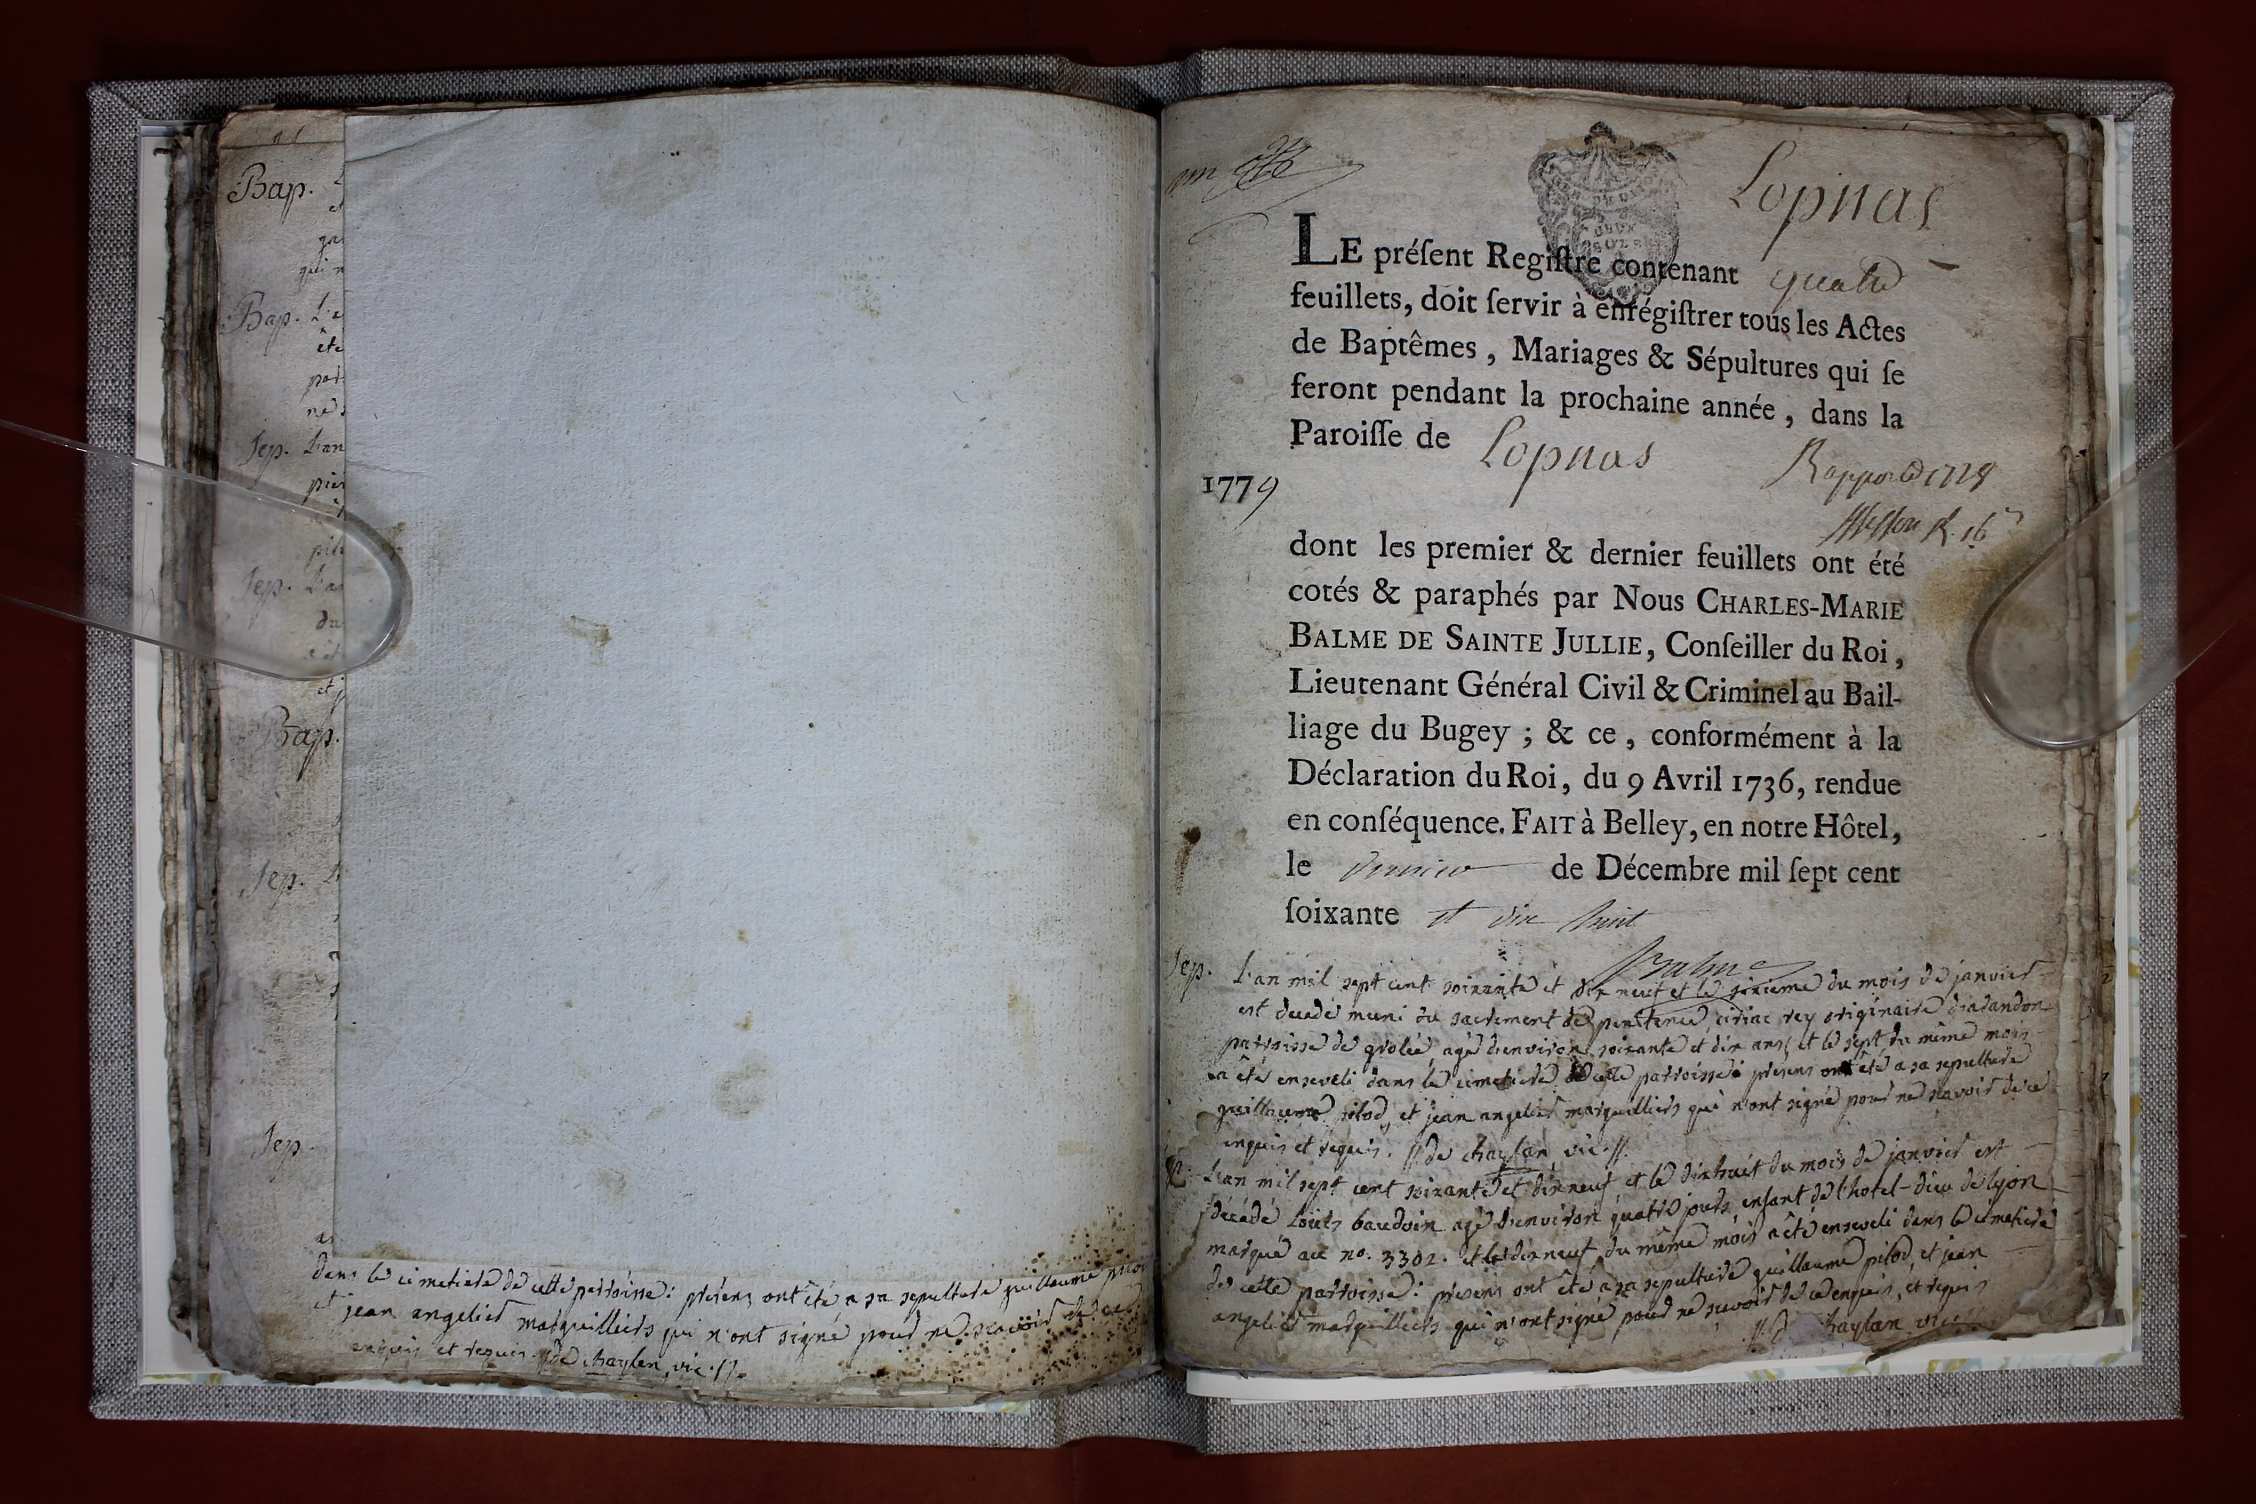 Bap.
qui n
Bap. L'e
été
par
ne s
Sep. L'an
pier
Sep. L'an
du
et j
Bap.
Sep.
Sep.
dans le cimetiere de cette parroisse: présens ont été a sa sepulture guillaume
et jean angelier marguilliers qui n'ont signé pour ne scavoir de ce
enquis et requis. // de chaylan, vic. //.
Lopnas
LE préſent Regiſtre contenant quatre
feuillets, doit ſervir à enrégiſtrer tous les Actes
de Baptêmes, Mariages & Sépultures qui ſe
feront pendant la prochaine année, dans la
Paroiſſe de Lopnas
Rapporté 1778
1779
dont les premier & dernier feuillets ont été
cotés & paraphés par Nous CHARLES-MARIE
BALME DE SAINTE JULLIE, Conſeiller du Roi,
Lieutenant Général Civil & Criminel au Bail-
liage du Bugey ; & ce, conformément à la
Déclaration du Roi, du 9 Avril 1736, rendue
en conſéquence. FAIT à Belley, en notre Hôtel,
le premier de Décembre mil ſept cent
ſoixante et dix huit
Balme
Sep. L'an mil sept cent soixante et dix neuf et le sixieme du mois de janvier
est decedé muni du sacrement de penitence, ciriac rey originaire
parroisse de grolée, agé d'environ soixante et dix ans, et le sept du même mois
a été enseveli dans le cimetiere de cette parroisse: presens ont été a sa sepulture
guillaume pilod, et jean angelier marguilliers qui n'ont signé pour ne scavoir de ce
enquis et requis. // de chaylan, vic. //.
L'an mil sept cent soixante et dix neuf et le dix huit du mois de janvier est
décédé louis baudoin agé d'environ quatre jours, enfant de l'hotel-dieu de lyon
marqué au no. 3302. et le dix neuf du même mois a été enseveli dans le cimetiere
de cette parroisse: presens ont été a sa sepulture guillaume pilod, et jean
angelier marguilliers qui n'ont signé pour ne scavoir de ce enquis, et requis
// de chaylan vic. //